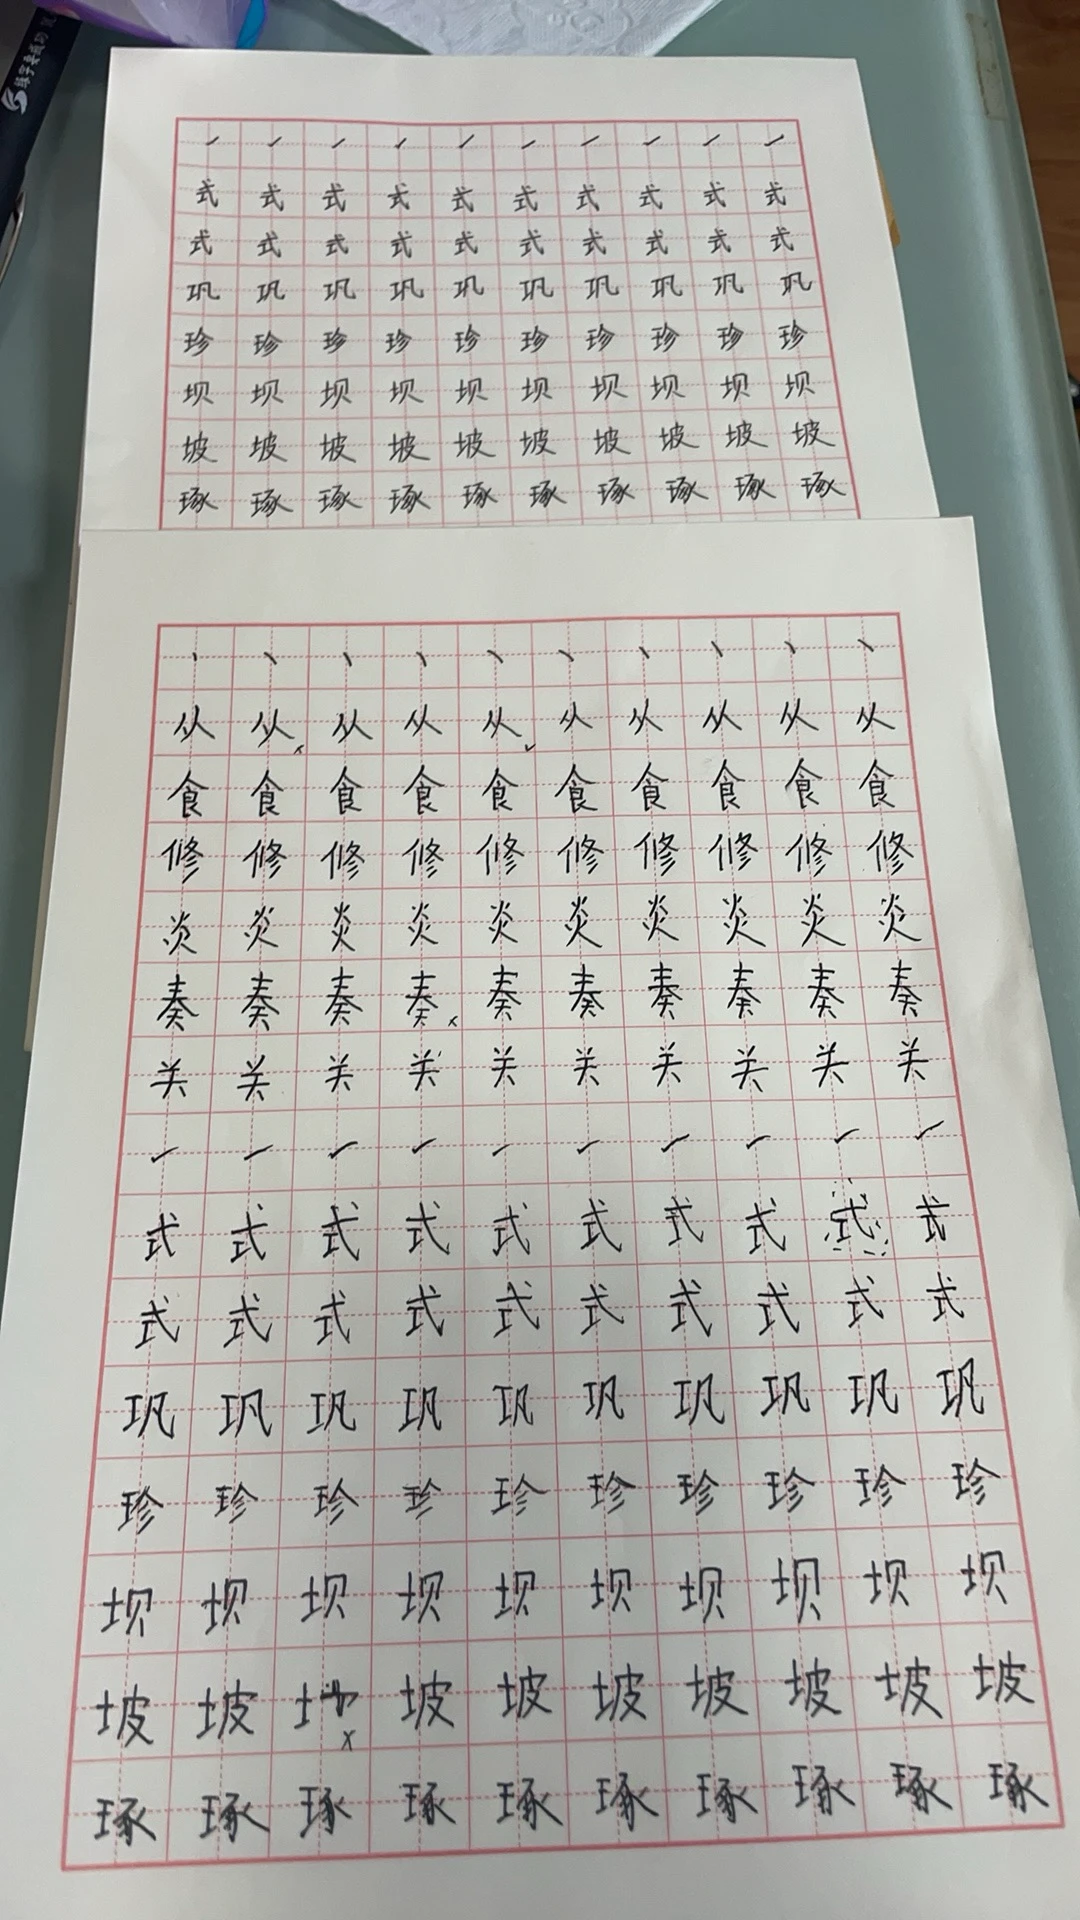 练字要成功
式式式式式式式式式式
式式式式式式式式式式
巩巩巩巩巩巩巩巩巩巩
珍珍珍珍珍珍珍珍珍珍
坝坝坝坝坝坝坝坝坝坝
坡坡坡坡坡坡坡坡坡坡
琢琢琢琢琢琢琢琢琢琢
从从从从从从从从从从
食食食食食食食食食食
修修修修修修修修修修
炎炎炎炎炎炎炎炎炎炎
奏奏奏奏奏奏奏奏奏奏
关关关关关关关关关关
式式式式式式式式式式
式式式式式式式式式式
巩巩巩巩巩巩巩巩巩巩
珍珍珍珍珍珍珍珍珍珍
坝坝坝坝坝坝坝坝坝坝
坡坡坡坡坡坡坡坡坡
琢琢琢琢琢琢琢琢琢琢